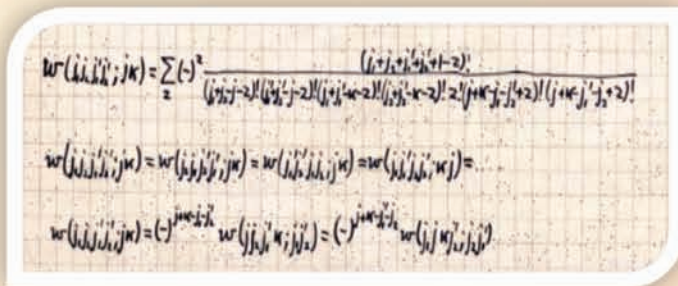 w(j₁j₂j₁'j₂';jκ)=∑_z(-)^z (j₁+j₂+j₁'+j₂'+1-z)! / (j₁+j₂-j-z)!(j₁'+j₂'-j-z)!(j₁+j₁'-κ-z)!(j₂+j₂'-κ-z)! z!(j+κ-j₁-j₂'+z)!(j+κ-j₁'-j₂+z)!
w(j₁j₂j₁'j₂';jκ)=w(j₂j₁j₂'j₁';jκ)=w(j₁'j₂'j₁j₂;jκ)=w(j₁j₁'j₂j₂';κj)=...
w(j₁j₂j₁'j₂';jκ)=(-) w(jj₂j₁'κ;j₁j₂')=(-) w(j₁jκj₂';j₂j₁')